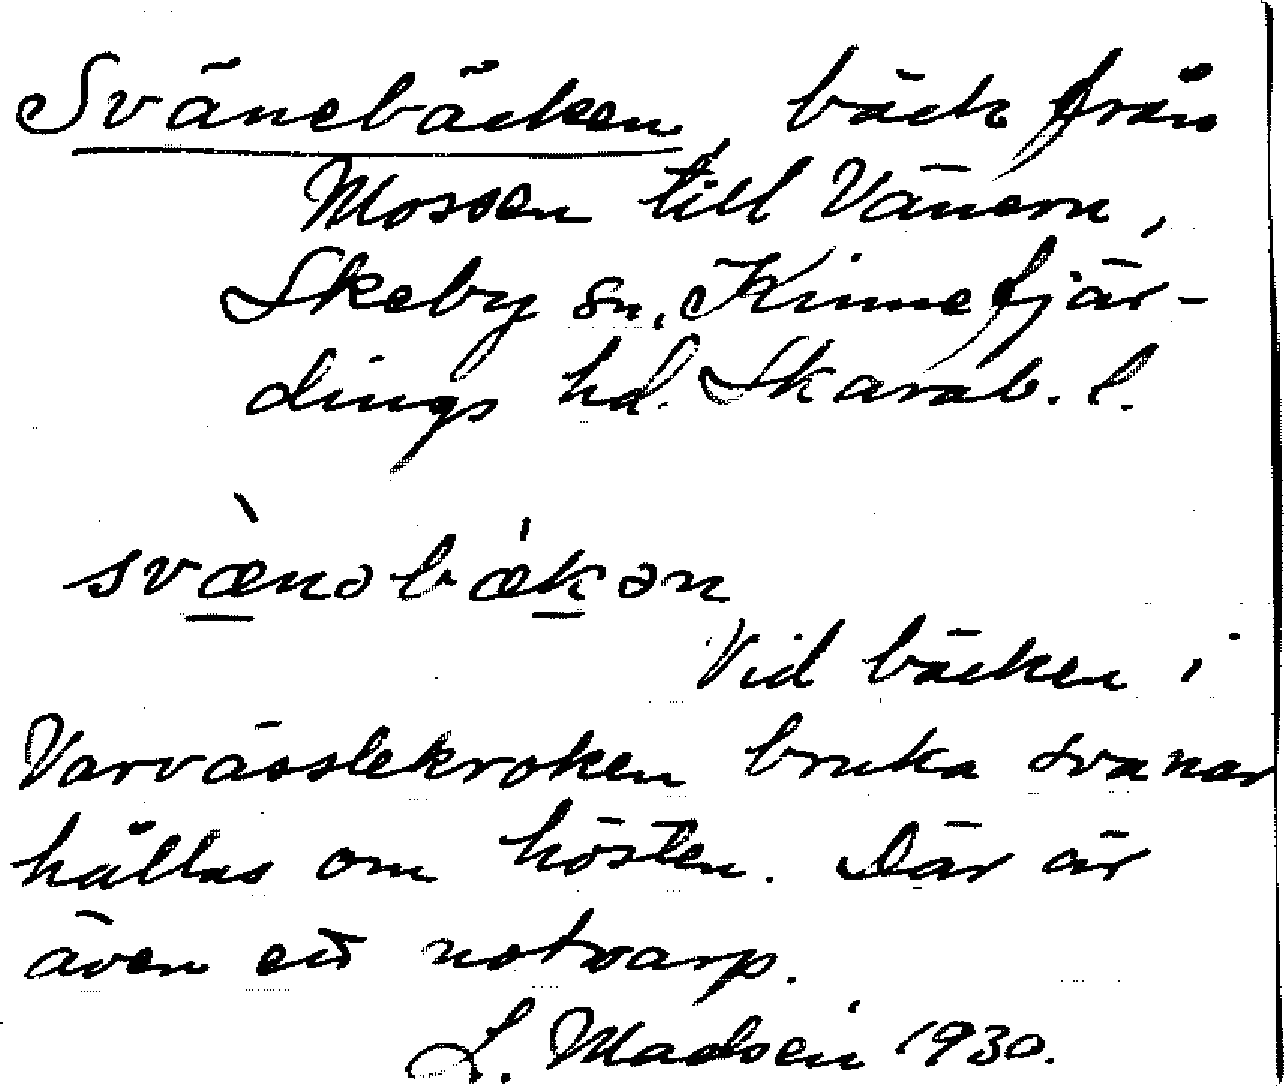 Svänebäcken, bäck från
Mossen till Vänern,
Skeby sn, Kinnefjär-
dings hd. Skarab. l.
svæ̀nəbǽkən
Vid bäcken i
Varvässlekroken bruka svanar
hållas om hösten. Där är
även ett notvarp.
L. Madsén 1930.